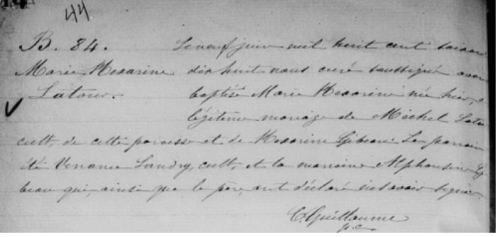 44
B. 84. Le neuf juin mil huit cent soixan
Marie Mesarine dix huit nous curé soussigné avons
Latour. baptisé Marie Mesarine née hier, 
légitime mariage de Michel Latour
cult. de cette paroisse et de Mesarine Le parrain
été Venance Landry, cult. et la marraine Alphonsine
beau qui, ainsi que le père, ont déclaré ne savoir signer.
C. Guillaume